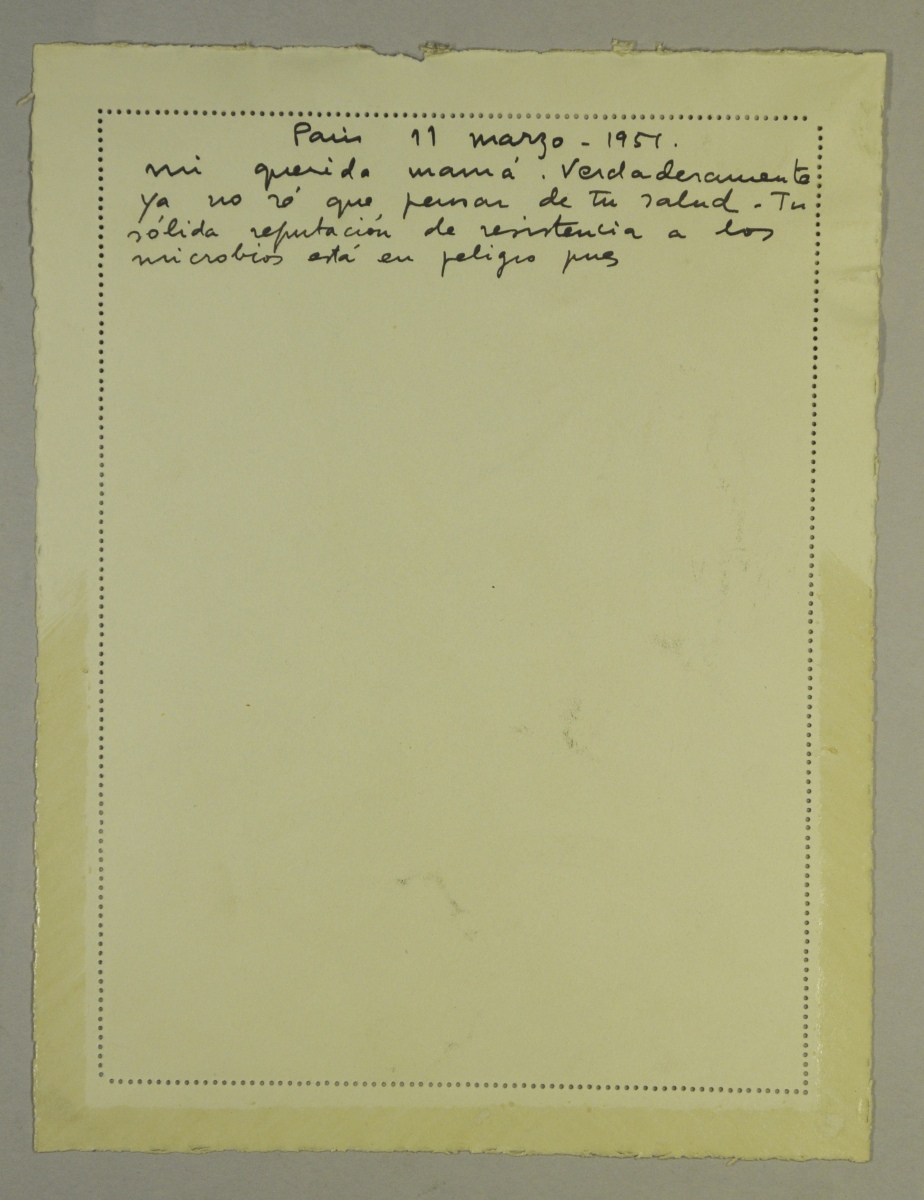 Paris 11 marzo - 1951.
mi querida mamá. Verdaderamente
ya no sé que pensar de tu salud - Tu
sólida reputación de resistencia a los
microbios está en peligro pues